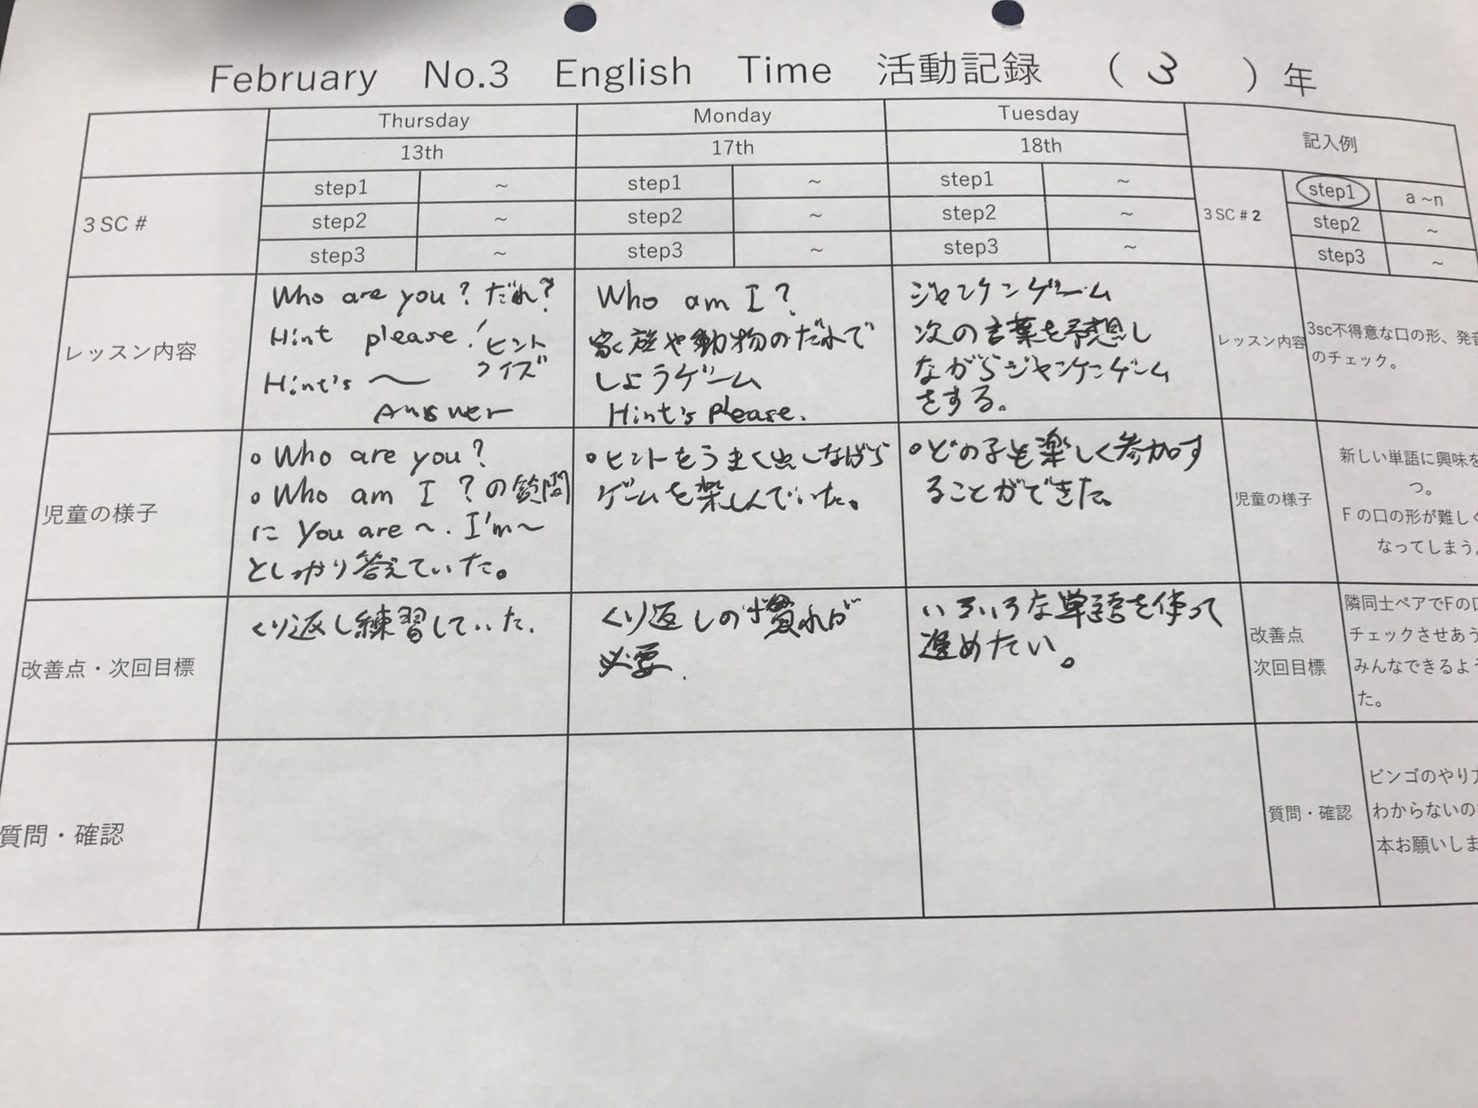 February No.3 English Time 活動記録 ( 3 ) 年
Thursday Monday Tuesday
記入例
13th 17th 18th
3 SC #
step1 ~ step1 ~ step1 ~
step2 ~ step2 ~ step2 ~
step3 ~ step3 ~ step3 ~
3 SC # 2
step1 a ~n
step2 ~
step3 ~
レッスン内容
Who are you? だれ?
Hint please! ヒント
クイズ
Hint's ~
Answer
Who am I?
家族や動物のだれで
しょうゲーム
Hint's please.
ジャンケンゲーム
次の言葉を予想し
ながらジャンケンゲーム
をする。
レッスン内容
3sc不得意な口の形、発音
のチェック。
児童の様子
○ Who are you?
○ Who am I ? の質問
に You are ~. I'm ~
としっかり答えていた。
○ヒントをうまく出しながら
ゲームを楽しんでいた。
○どの子も楽しく参加す
ることができた。
児童の様子
新しい単語に興味を
つ。
F の口の形が難しく
なってしまう。
改善点・次回目標
くり返し練習していた.
くり返しの慣れが
必要.
いろいろな単語を使って
進めたい。
改善点
次回目標
隣同士ペアでFの口
チェックさせあう
みんなできるよう
た。
質問・確認
質問・確認
ビンゴのやり方
わからないの
本お願いしま